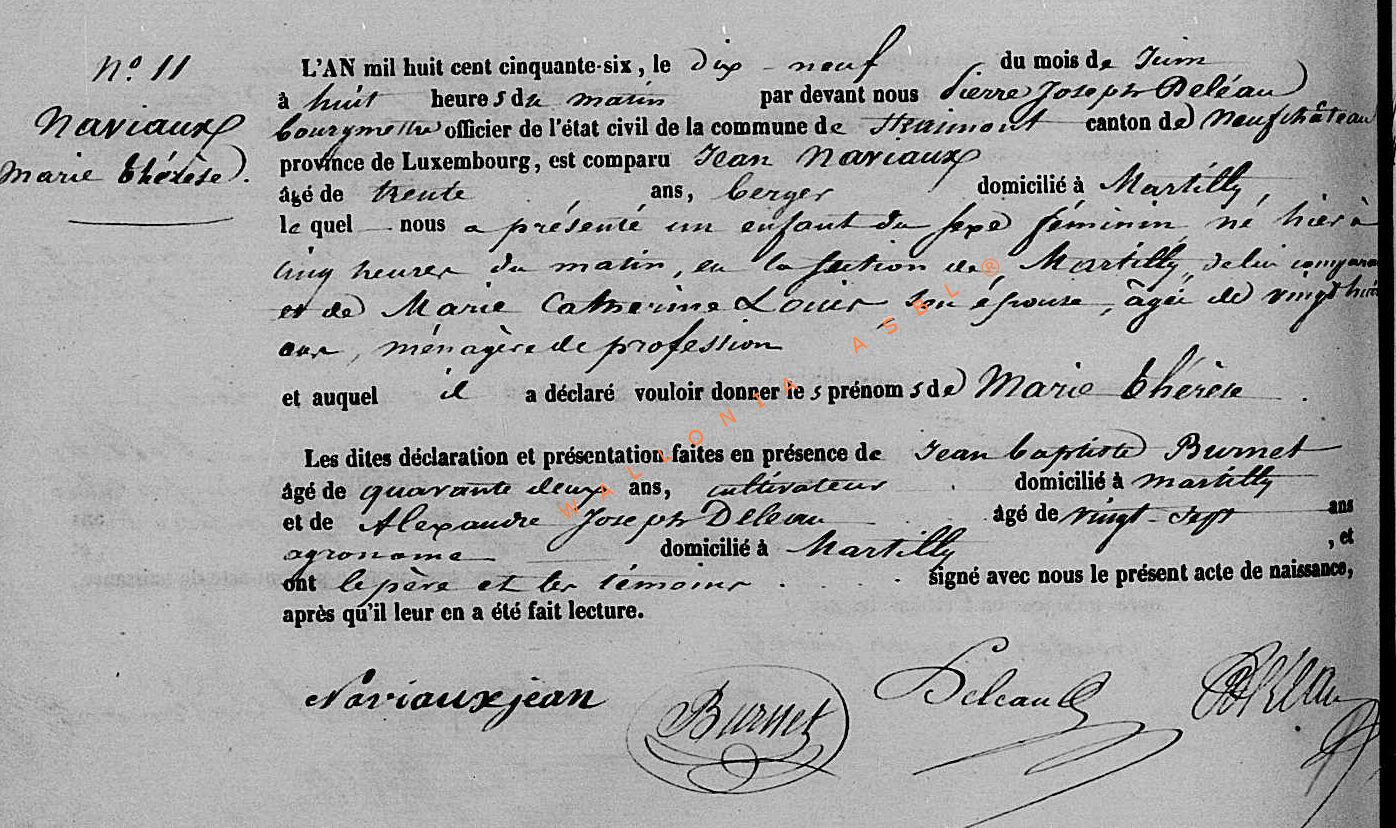 N.o 11
Naviaux
Marie Thérèse.
L'AN mil huit cent cinquante-six, le dix-neuf du mois de Juin
à huit heures du matin par devant nous Pierre Joseph Deléau
bourgmestre officier de l'état civil de la commune de Straimont canton de Neufchâteau
province de Luxembourg, est comparu Jean Naviaux
âgé de trente ans, berger domicilié à Martilly,
le quel nous a présenté un enfant du sexe féminin né hier à
cinq heures du matin, en la section de Martilly, de lui compara
et de Marie Catherine Louis, son épouse, âgée de vingt huit
ans, ménagère de profession
et auquel il a déclaré vouloir donner les prénoms de Marie Thérèse.
Les dites déclaration et présentation faites en présence de Jean baptiste Burnet
âgé de quarante deux ans, cultivateur domicilié à Martilly
et de Alexandre Joseph Deleau âgé de vingt-sept ans
agronome domicilié à Martilly, et
ont le père et les témoins signé avec nous le présent acte de naissance,
après qu'il leur en a été fait lecture.
Naviaux jean Burnet Deleau
WALLONIA ASBL ®